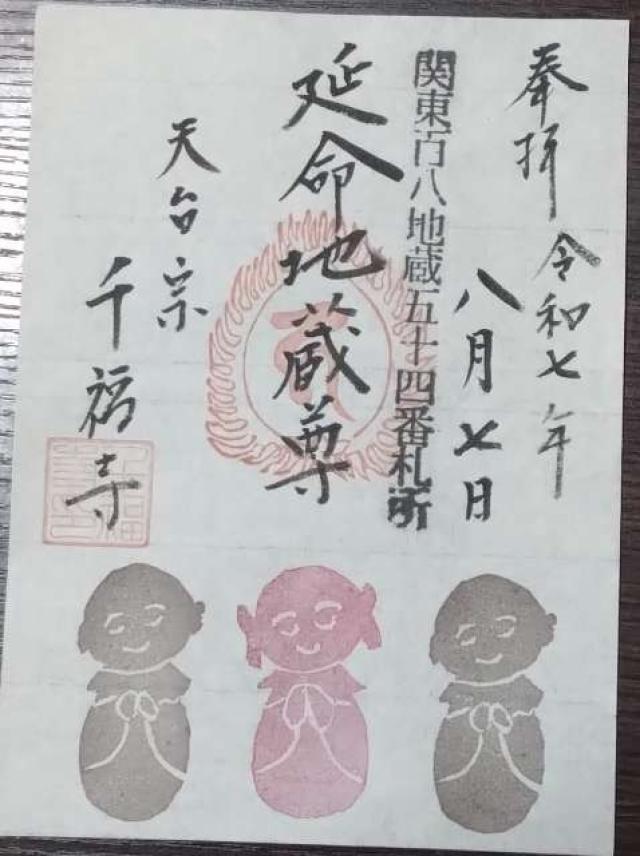 奉拝 令和七年
八月七日
関東百八地蔵五十四番札所
延命地蔵尊
天台宗
千福寺